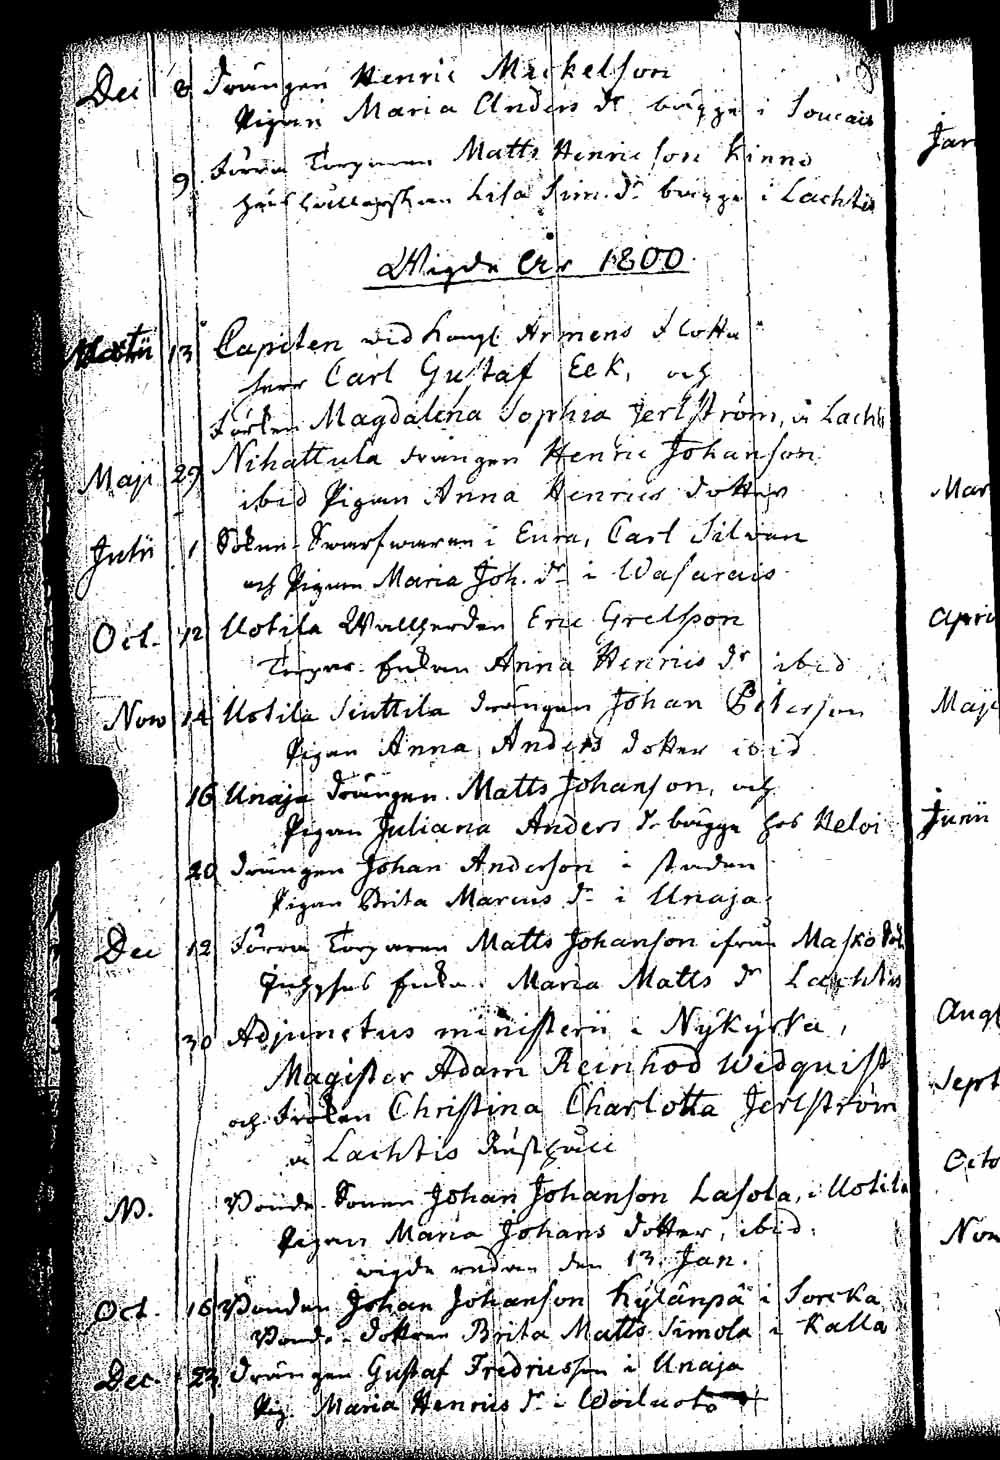 Dec 8 Drängen Henric Mickelson
Pigan Maria Anders dr bägge i Soucais
9 Förra Torparen Matts Henricson Kinno
Hushållerskan Lisa Sim. dr bägge i Lachtis
Wigde År 1800
Martii 13 Capiten vid Kongl Armens Flotta
Herr Carl Gustaf Eek, och
Fröken Magdalena Sophia Jerlström, å Lachtis
Maji 29 Nihattula drängen Henric Johanson
ibid Pigan Anna Henrics dotter
Julii 1 Sokne-Swarfwaren i Eura, Carl Silvan
och Pigan Maria Joh. dr i Wasarais
Oct. 12 Uotila Wallherden Eric Grelsson
Torpar-Enkan Anna Henrics dr ibid
Nov 14 Uotila Siuttila drängen Johan Peterson
Pigan Anna Anders dotter ibid
16 Unaja drängen Matts Johanson, och
Pigan Juliana Anders dr bägge hos Heloi
20 drängen Johan Anderson i staden
Pigan Brita Marcus dr i Unaja
Dec 12 Förra Torparen Matts Johanson ifrån Masko
Inhyses Enkan Maria Matts dr Lachtis
30 Adjunctus ministerii i Nykyrka,
Magister Adam Reinhod Widquist
och Fröken Christina Charlotta Jerlström
å Lachtis Rusthåll
N. Bonde-Sonen Johan Johanson Lasola, i Uotila
Pigan Maria Johans dotter, ibid.
vigde redan den 13. Jan.
Oct. 16 Bonden Johan Johanson Kylänpä i Sorcka
Bonde-Dottren Brita Matts Simola i Kalla
Dec. 23 Drängen Gustaf Fredricsson i Unaja
Pig. Maria Henrics dr i Woiluoto
Jan
Mar
April
Maji
Junii
Augt
Sept
Octo
Nov